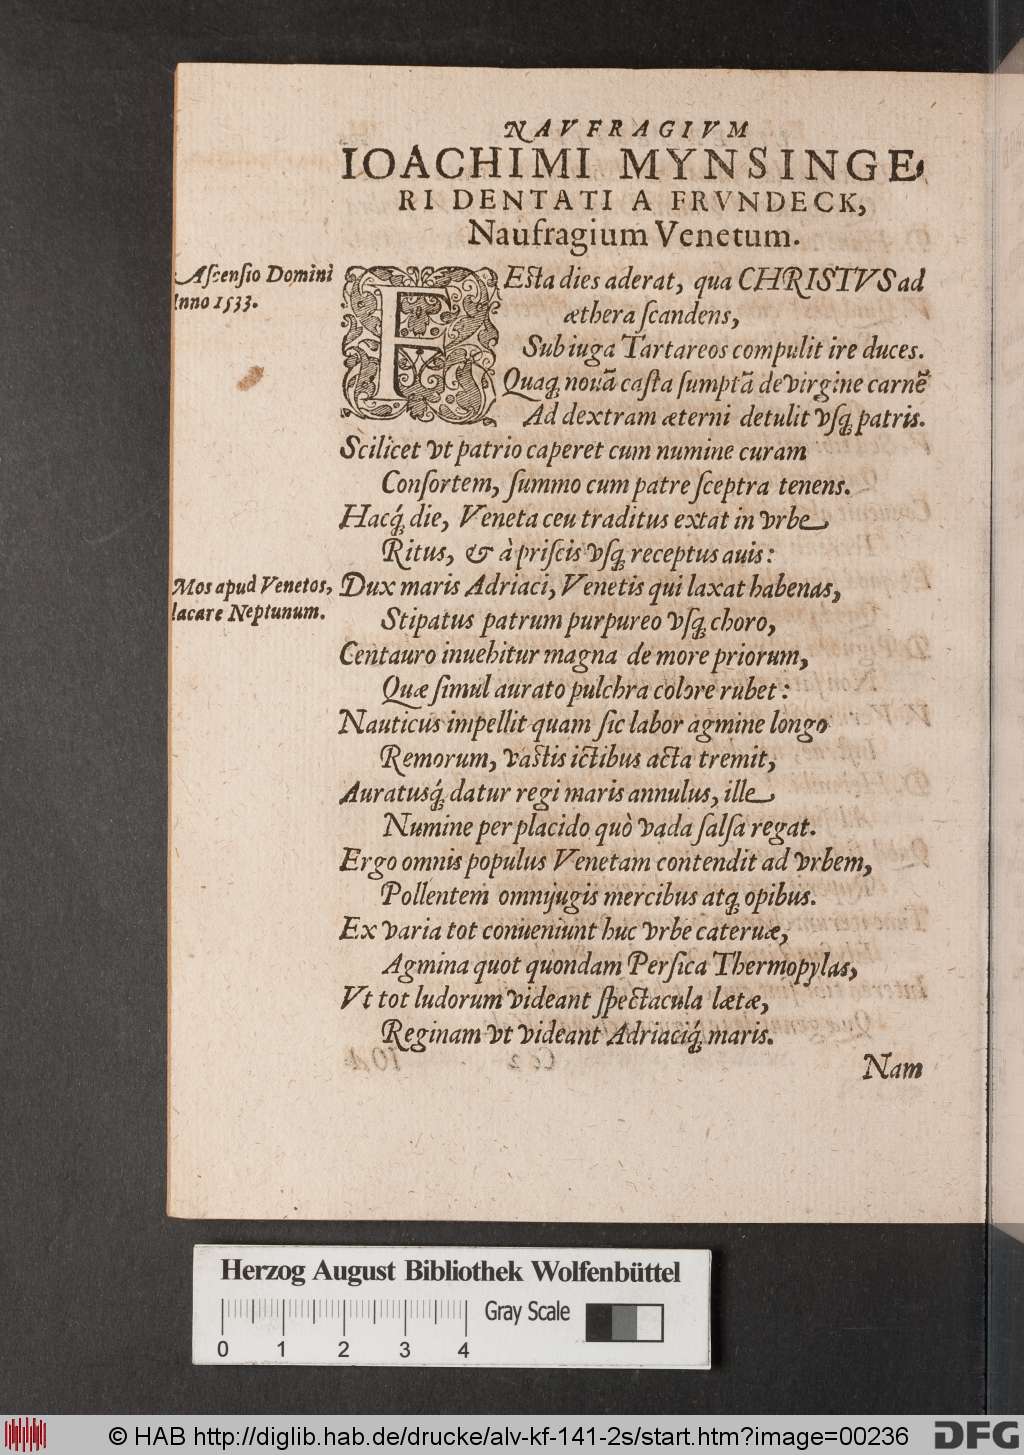 NAVFRAGIVM
IOACHIMI MYNSINGE
RI DENTATI A FRVNDECK,
Naufragium Venetum.
Aſcenſio Domini
Anno 1533.
FEſta dies aderat, qua CHRISTVS ad
æthera ſcandens,
Sub iuga Tartareos compulit ire duces.
Quaq; nouā caſta ſumptā de virgine carnē
Ad dextram æterni detulit vſq; patris.
Scilicet vt patrio caperet cum numine curam
Conſortem, ſummo cum patre ſceptra tenens.
Hacq́; die, Veneta ceu traditus extat in vrbe
Ritus, & à priſcis vſq; receptus auis:
Mos apud Venetos,
lacare Neptunum.
Dux maris Adriaci, Venetis qui laxat habenas,
Stipatus patrum purpureo vſq; choro,
Centauro inuehitur magna de more priorum,
Quæ ſimul aurato pulchra colore rubet:
Nauticus impellit quam ſic labor agmine longo
Remorum, vaſtis ictibus acta tremit,
Auratusq́; datur regi maris annulus, ille
Numine per placido quò vada ſalſa regat.
Ergo omnis populus Venetam contendit ad vrbem,
Pollentem omnijugis mercibus atq; opibus.
Ex varia tot conueniunt huc vrbe cateruæ,
Agmina quot quondam Perſica Thermopylas,
Vt tot ludorum videant ſpectacula lætæ,
Reginam vt videant Adriaciq́; maris.
Nam
Herzog August Bibliothek Wolfenbüttel
Gray Scale
0 1 2 3 4
© HAB http://diglib.hab.de/drucke/alv-kf-141-2s/start.htm?image=00236
DFG